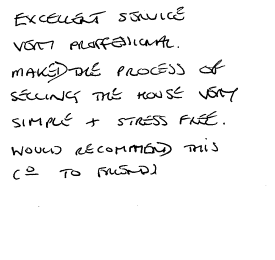 EXCELLENT SERVICE
VERY PROFESSIONAL.
MAKED THE PROCESS OF
SELLING THE HOUSE VERY
SIMPLE + STRESS FREE.
WOULD RECOMMEND THIS
Cº TO FRIENDS